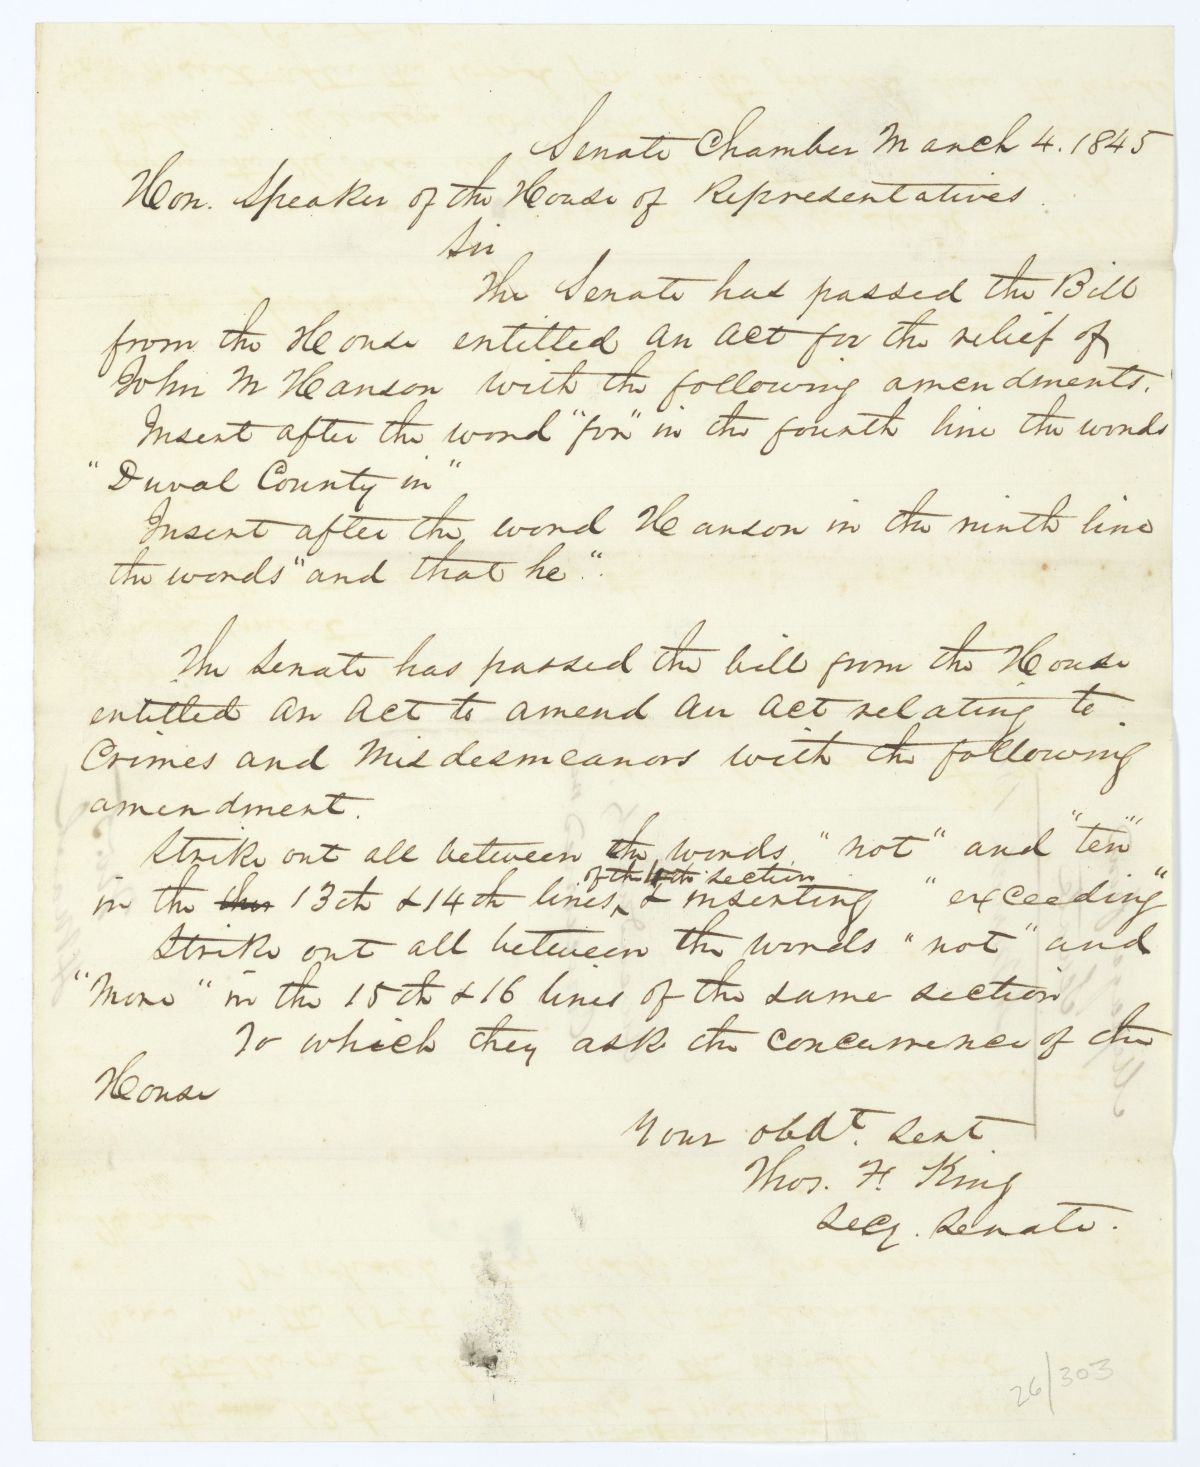 Senate Chamber March 4. 1845
Hon. Speaker of the House of Representatives
Sir
The Senate has passed the Bill
from the House entitled An Act for the relief of
John M Hanson with the following amendments.
Insert after the word "for" in the fourth line the words
"Duval County in"
Insert after the word Hanson in the ninth line
the words "and that he".
The Senate has passed the bill from the House
entitled An Act to amend An Act relating to
Crimes and Misdesmeanors with the following
amendment.
Strike out all between the words "not" and "ten"
of the section
in the 13th & 14th lines & inserting "exceeding"
Strike out all between the words "not" and
"More" in the 15th & 16 lines of the same section
To which they ask the concurrence of the
House
Your obdt. Sert
Thos. F. King
Secy. Senate.
26/303